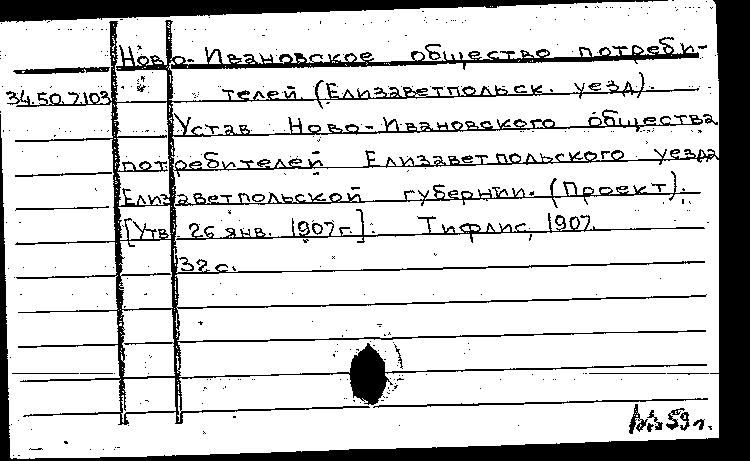 Ново-Ивановское общество потреби-
34.50.7.103 телей. (Елизаветпольск. уезд).
Устав Ново-Ивановского общества
потребителей Елизаветпольского уезда
Елизаветпольской губернии. (Проект).
[Утв. 26 янв. 1907 г.]. Тифлис, 1907.
32 с.
59 г.